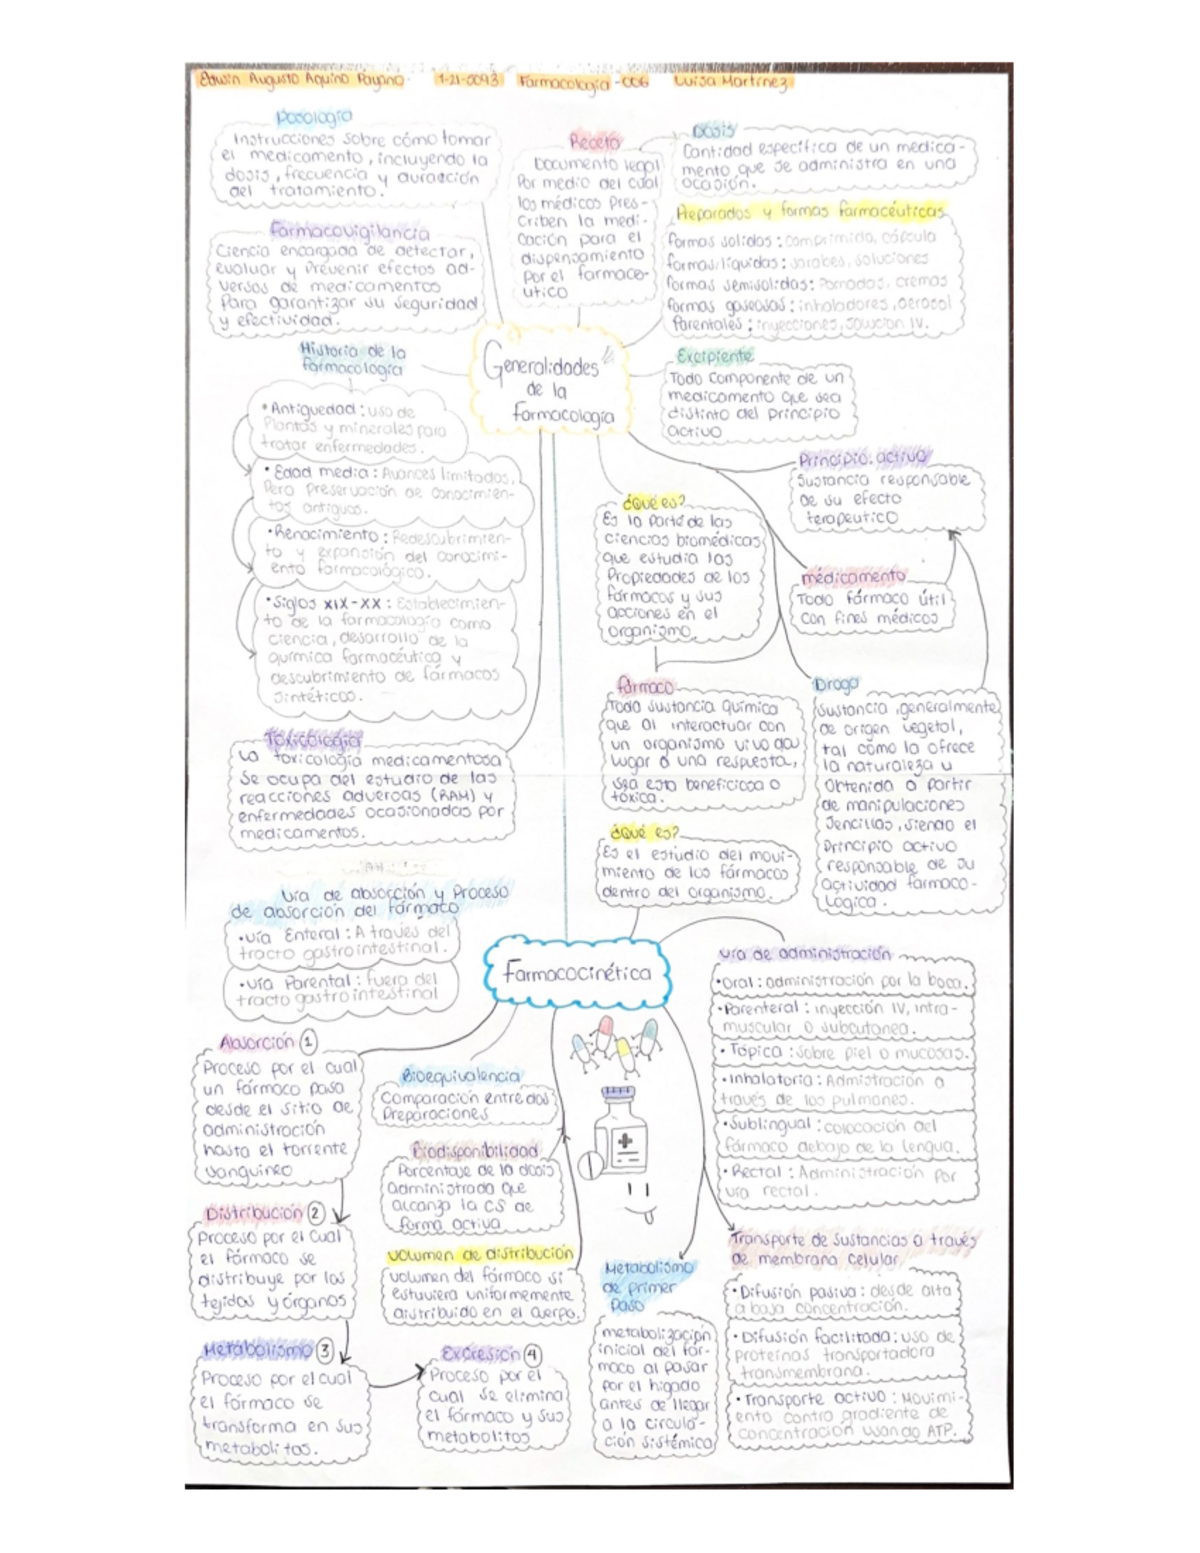 Edwin Augusto Aquino Payano 1-21-0093 Farmacología-006 Luisa Martinez
Posología
Instrucciones sobre cómo tomar
el medicamento, incluyendo la
dosis, frecuencia y duración
del tratamiento.
Receta
Documento legal
Por medio del cual
los médicos Pres-
Criben la medi-
Cación para el
dispensamiento
Por el farmace-
utico
Dosis
Cantidad específica de un medica-
mento que se administra en una
ocasión.
Preparados y formas farmacéuticas
formas solidas: comprimida, cápcula
formas líquidas: jarabes, soluciones
formas semisolidas: Pomadas, cremas
formas gaseosas: inhaladores, aerosol
Parentales: inyecciones, solucion IV.
Farmacovigilancia
Ciencia encargada de detectar,
evaluar y Prevenir efectos ad-
versos de medicamentos
Para garantizar su seguridad
y efectividad.
Generalidades
de la
farmacología
Historia de la
farmacología
•Antiguedad: uso de
Plantas y minerales para
tratar enfermedades.
•Edad media: Avances limitados,
Pero Preservación de conocimien-
tos antiguos.
•Renacimiento: Redescubrimien-
to y expansión del conocimi-
ento farmacológico.
•Siglos XIX-XX: Establecimien-
to de la farmacología como
ciencia, desarrollo de la
química farmacéutica y
descubrimiento de fármacos
sintéticos.
Excipiente
Todo componente de un
medicamento que sea
distinto del principio
activo
Principio activo
Sustancia responsable
de su efecto
terapeutico
¿Qué es?
Es la parte de las
ciencias biomédicas
que estudia las
Propiedades de los
fármacos y sus
acciones en el
organismo.
médicamento
Todo fármaco útil
con fines médicos
fármaco
Toda sustancia química
que al interactuar con
un organismo vivo dau
lugar a una respuesta,
sea esta beneficiosa o
tóxica.
Droga
Sustancia, generalmente
de origen vegetal,
tal como la ofrece
la naturaleza u
Obtenida a partir
de manipulaciones
sencillas, siendo el
Principio activo
responsable de su
actividad farmaco-
Lógica.
Toxicología
La toxicología medicamentosa
Se ocupa del estudio de las
reacciones adversas (RAM) y
enfermedades ocasionadas por
medicamentos.
¿Qué es?
Es el estudio del movi-
miento de los fármacos
dentro del organismo.
Vía de absorción y Proceso
de absorción del fármaco
•Vía Enteral: A través del
tracto gastrointestinal.
•Vía Parental: fuera del
tracto gastrointestinal
Farmacocinética
Vía de administración
•Oral: administración por la boca.
•Parenteral: inyección IV, intra-
muscular o subcutanea.
•Tópica: Sobre piel o mucosas.
•Inhalatoria: Admistración a
través de los pulmones.
•Sublingual: colocación del
fármaco debajo de la lengua.
•Rectal: Administración por
vía rectal.
Absorción 1
Proceso por el cual
un fármaco pasa
desde el sitio de
administración
hasta el torrente
sanguineo
Bioequivalencia
Comparación entre dos
Preparaciones
Biodisponibilidad
Porcentaje de la dosis
administrada que
alcanza la CS de
forma activa
Distribución 2
Proceso por el cual
el fármaco se
distribuye por los
tejidos y órganos
Volumen de distribución
volumen del fármaco si
estuviera uniformemente
distribuido en el cuerpo.
Metabolismo 3
Proceso por el cual
el fármaco se
transforma en sus
metabolitos.
Excresión 4
Proceso por el
cual se elimina
el fármaco y sus
metabolitos
Metabolismo
de primer
paso
metabolización
inicial del fár-
maco al pasar
por el higado
antes de llegar
a la circula-
ción sistémica
Transporte de sustancias a través
de membrana celular
•Difusión pasiva: desde alta
a baja concentración.
•Difusión facilitada: uso de
proteínas transportadora
transmembrana.
•Transporte activo: Movimi-
ento contra gradiente de
concentración usando ATP.